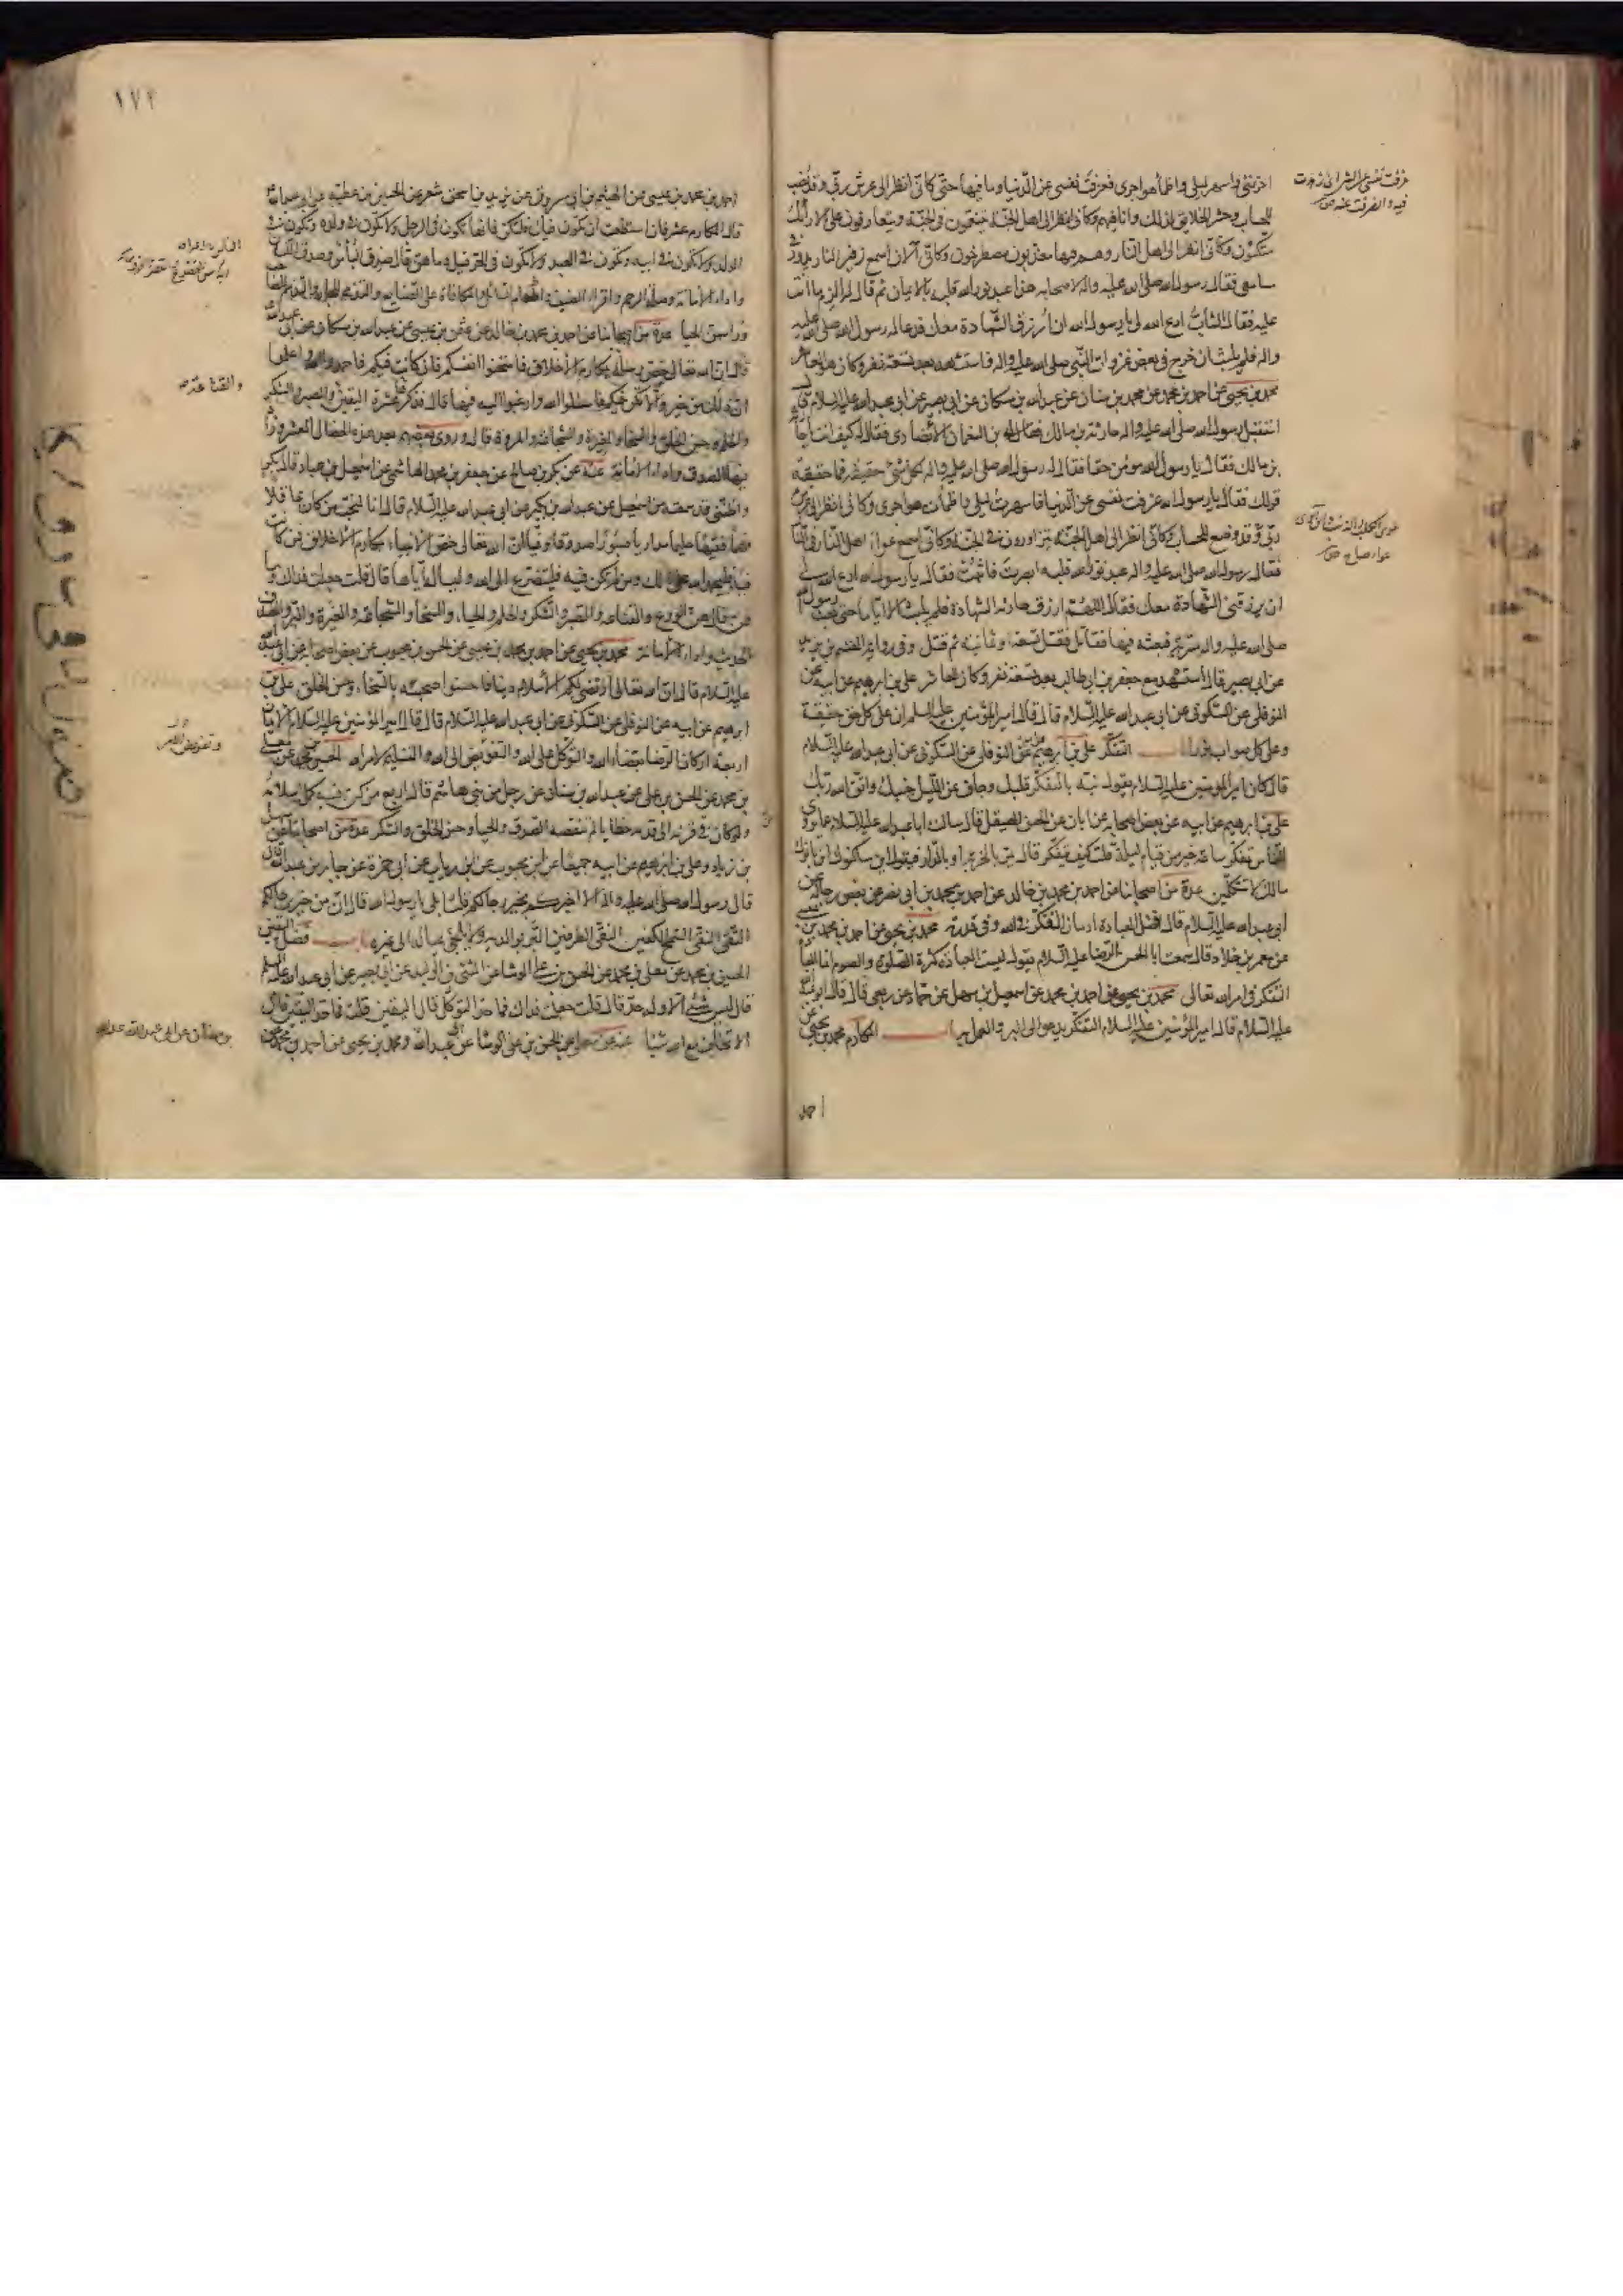 احزنني واسهر ليلي واظمأ هواجري فعزفت نفسي عن الدنيا وما فيها حتى كاني انظر الى عرش ربي وقد نصب
للحساب وحشر الخلايق لذلك وانا فيهم وكاني انظر الى اهل الجنة يتنعمون في الجنة ويتعارفون على الارائك
متكئون وكاني انظر الى اهل النار وهم فيها معذبون مصطرخون وكاني الان اسمع زفير النار يدور في
مسامعي فقال رسول الله صلى الله عليه واله لاصحابه هذا عبد نور الله قلبه بالايمان ثم قال له الزم ما انت
عليه فقال الشاب ادع الله لي يا رسول الله ان ارزق الشهادة معك فدعا له رسول الله صلى الله عليه
واله فلم يلبث ان خرج في بعض غزوات النبي صلى الله عليه واله فاستشهد بعد تسعة نفر وكان هو العاشر
محمد بن يحيى عن احمد بن محمد عن محمد بن سنان عن عبد الله بن مسكان عن ابي بصير عن ابي عبد الله عليه السلام قال
استقبل رسول الله صلى الله عليه واله حارثة بن مالك بن النعمان الانصاري فقال له كيف انت يا حارثة
بن مالك فقال يا رسول الله مومن حقا فقال له رسول الله صلى الله عليه واله لكل شئ حقيقة فما حقيقة
قولك فقال يا رسول الله عزفت نفسي عن الدنيا فاسهرت ليلي واظمأت هواجري وكاني انظر الى عرش
ربي وقد وضع للحساب وكاني انظر الى اهل الجنة يتزاورون في الجنة وكاني اسمع عواء اهل النار في النار
فقال رسول الله صلى الله عليه واله عبد نور الله قلبه ابصرت فاثبت فقال يا رسول الله ادع الله لي
ان يرزقني الشهادة معك فقال اللهم ارزق حارثة الشهادة فلم يلبث الا اياما حتى بعث رسول الله
صلى الله عليه واله سرية فبعثه فيها فقاتل فقتل تسعة او ثمانية ثم قتل وفي رواية القسم بن بريد
عن ابي بصير قال استشهد مع جعفر بن ابي طالب بعد تسعة نفر وكان هو العاشر علي بن ابرهيم عن ابيه عن
النوفلي عن السكوني عن ابي عبد الله عليه السلام قال قال امير المؤمنين عليه السلم ان على كل حق حقيقة
وعلى كل صواب نورا باب التفكر علي بن ابرهيم عن ابيه عن النوفلي عن السكوني عن ابي عبد الله عليه السلام
قال كان امير المؤمنين عليه السلام يقول نبه بالتفكر قلبك وجاف عن الليل جنبك واتق الله ربك
علي بن ابرهيم عن ابيه عن بعض اصحابه عن ابان عن الحسن الصيقل قال سالت ابا عبد الله عليه السلام عما يروي
الناس تفكر ساعة خير من قيام ليلة قلت كيف يتفكر قال يمر بالخربة او بالدار فيقول اين ساكنوك اين بانوك
مالك لا تتكلمين عدة من اصحابنا عن احمد بن محمد بن خالد عن احمد بن محمد بن ابي نصر عن بعض رجاله عن
ابي عبد الله عليه السلام قال افضل العبادة ادمان التفكر في الله وفي قدرته محمد بن يحيى عن احمد بن محمد بن عيسى
عن معمر بن خلاد قال سمعت ابا الحسن الرضا عليه السلام يقول ليست العبادة كثرة الصلوة والصوم انما العبادة
التفكر في امر الله تعالى محمد بن يحيى عن احمد بن محمد عن اسمعيل بن سهل عن حماد عن ربعي قال قال ابو عبد الله
عليه السلام قال امير المؤمنين عليه السلام التفكر يدعو الى البر والعمل به باب المكارم محمد بن يحيى عن
احمد
١٧٢
احمد بن محمد بن عيسى عن الهيثم بن ابي مسروق عن يزيد بن اسحق شعر عن الحسين بن عطية عن ابي عبد الله
قال المكارم عشر فان استطعت ان تكون فيك فلتكن فانها تكون في الرجل ولا تكون في ولده وتكون في
الولد ولا تكون في ابيه وتكون في العبد ولا تكون في الحر قيل وما هن قال صدق البأس وصدق اللسان
واداء الامانة وصلة الرحم واقراء الضيف واطعام السائل والمكافاة على الصنايع والتذمم للجار والتذمم للصاحب
وراسهن الحياء عدة من اصحابنا عن احمد بن محمد بن خالد عن عثمن بن عيسى عن عبد الله بن مسكان عن ابي عبد الله
قال ان الله تعالى خص رسله بمكارم الاخلاق فامتحنوا انفسكم فان كانت فيكم فاحمدوا الله واعلموا
ان ذلك من خير والا تكن فيكم فاسئلوا الله وارغبوا اليه فيها قال فذكر عشرة اليقين والصبر والشكر
والحلم وحسن الخلق والسخاء والغيرة والشجاعة والمروة قال وروى بعضهم بعد هذه الخصال العشر وزاد
فيها الصدق واداء الامانة عنه عن بكر بن صالح عن جعفر بن محمد الهاشمي عن اسمعيل بن عباد قال بكر
واظنني قد سمعته من اسمعيل عن عبد الله بن بكير عن ابي عبد الله عليه السلام قال انا لنحب من كان عاقلا
فهما فقيها حليما مداريا صبورا صدوقا وفيا ان الله تعالى خص الانبياء بمكارم الاخلاق فمن كانت
فيه فليحمد الله على ذلك ومن لم تكن فيه فليتضرع الى الله وليساله اياها قال قلت جعلت فداك وما
هن قال هن الورع والقناعة والصبر والشكر والحلم والحياء والسخاء والشجاعة والغيرة والبر وصدق
الحديث واداء الامانة محمد بن يحيى عن احمد بن محمد بن عيسى عن الحسن بن محبوب عن بعض اصحابه عن ابي عبد الله
عليه السلام قال ان الله تعالى ارتضى لكم الاسلام دينا فاحسنوا صحبته بالسخاء وحسن الخلق علي بن
ابرهيم عن ابيه عن النوفلي عن السكوني عن ابي عبد الله عليه السلام قال قال امير المؤمنين عليه السلام الايمان
اربعة اركان الرضا بقضاء الله والتوكل على الله والتفويض الى الله والتسليم لامر الله الحسين بن محمد عن معلى
بن محمد عن الحسن بن علي عن عبد الله بن سنان عن رجل من بني هاشم قال اربع من كن فيه كمل اسلامه
ولو كان من قرنه الى قدمه خطايا لم تنقصه الصدق والحياء وحسن الخلق والشكر عدة من اصحابنا عن سهل
بن زياد وعلي بن ابرهيم عن ابيه جميعا عن ابن محبوب عن ابن رياب عن ابي حمزة عن جابر بن عبد الله قال
قال رسول الله صلى الله عليه واله الا اخبركم بخير رجالكم قلنا بلى يا رسول الله قال ان من خير رجالكم
التقي النقي السمح الكفين النقي الطرفين البر بوالديه ولا يلجئ عياله الى غيره باب فضل اليقين
الحسين بن محمد عن معلى بن محمد عن الحسن بن علي الوشا عن المثنى بن الوليد عن ابي بصير عن ابي عبد الله عليه السلم
قال ليس شئ الا وله حد قال قلت جعلت فداك فما حد التوكل قال اليقين قلت فما حد اليقين قال
الا تخاف مع الله شيئا عنه عن معلى عن الحسن بن علي الوشا عن عبد الله ومحمد بن يحيى عن احمد بن محمد عن
والقناعة
وتفويض الامر
بن سنان عن ابي عبد الله عليه السلام